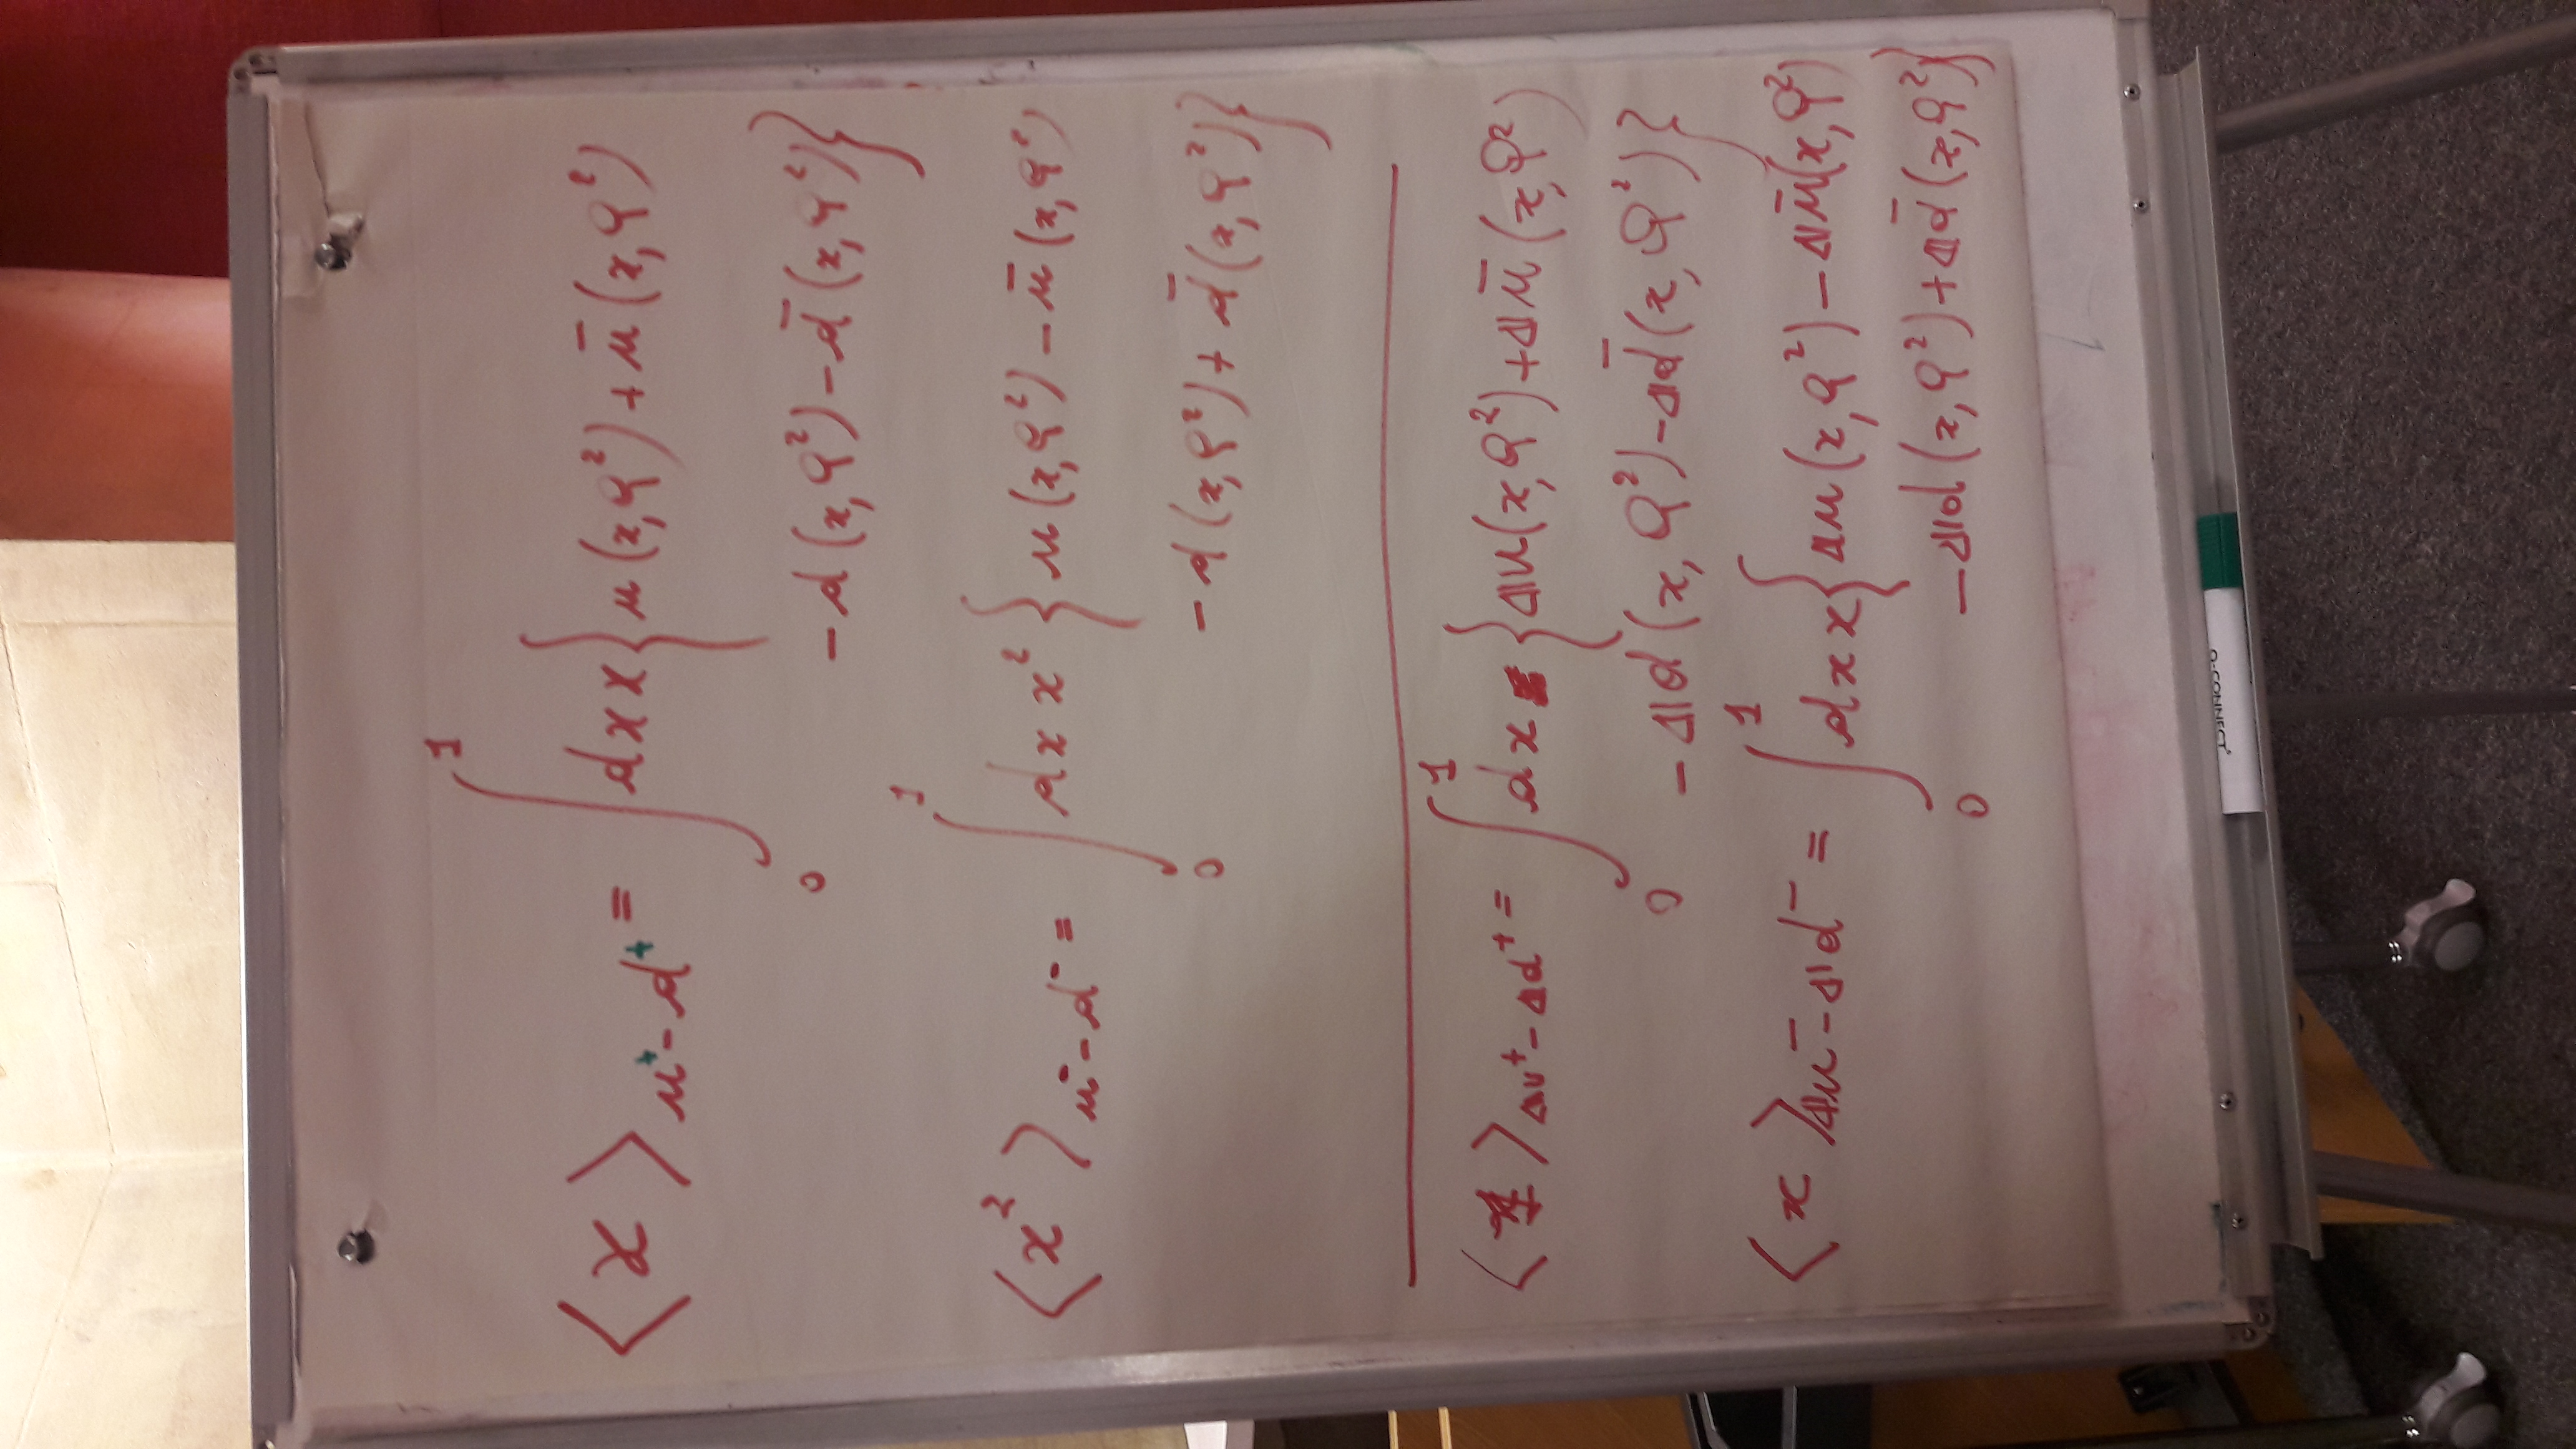 ⟨x⟩_{u⁺-d⁺} = ∫₀¹ dx x {u(x,Q²) + ū(x,Q²)
- d(x,Q²) - d̄(x,Q²)}
⟨x²⟩_{u⁻-d⁻} = ∫₀¹ dx x² {u(x,Q²) - ū(x,Q²)
- d(x,Q²) + d̄(x,Q²)}
⟨1⟩_{Δu⁺-Δd⁺} = ∫₀¹ dx {Δu(x,Q²) + Δū(x,Q²)
- Δd(x,Q²) - Δd̄(x,Q²)}
⟨x⟩_{Δu⁻-Δd⁻} = ∫₀¹ dx x {Δu(x,Q²) - Δū(x,Q²)
- Δd(x,Q²) + Δd̄(x,Q²)}
Q-CONNECT